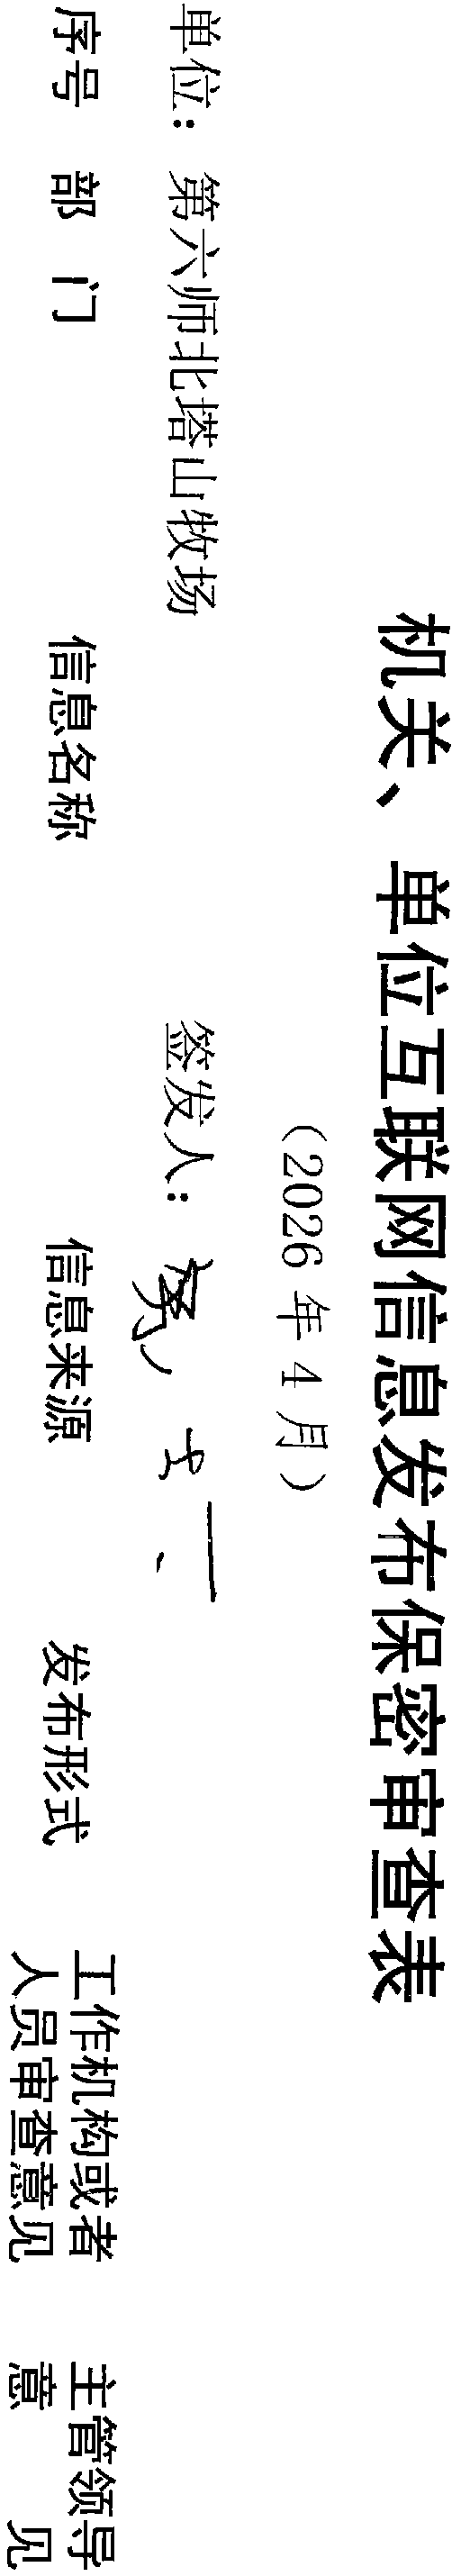 机关、单位互联网信息发布保密审查表
（2026 年 4 月）
单位：第六师北塔山牧场 签发人：
序号 部 门 信息名称 信息来源 发布形式 工作机构或者 主管领导
人员审查意见 意 见